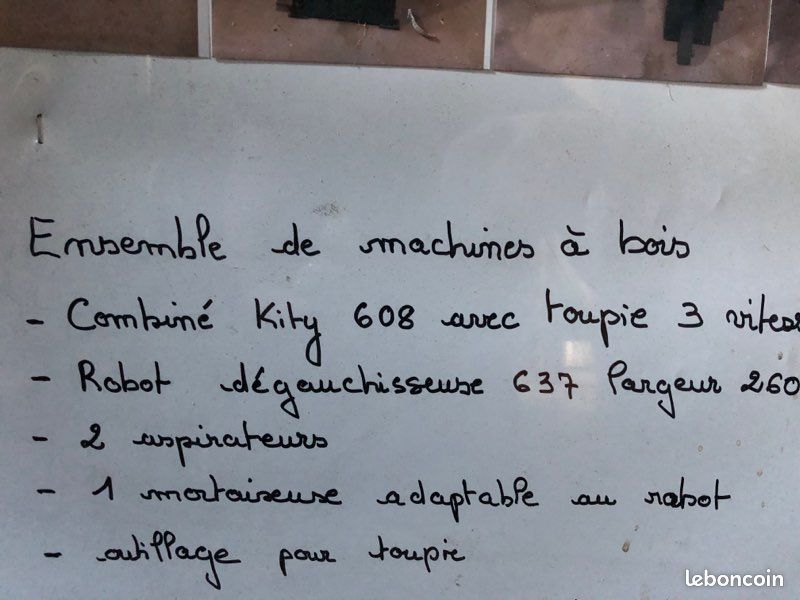 Ensemble de machines à bois
- Combiné Kity 608 avec toupie 3 vites
- Robot dégauchisseuse 637 largeur 260
- 2 aspirateurs
- 1 mortaiseuse adaptable au rabot
- outillage pour toupie
leboncoin